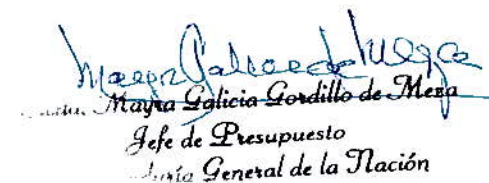 Mayra Galicia Gordillo de Meza
Jefe de Presupuesto
General de la Nación